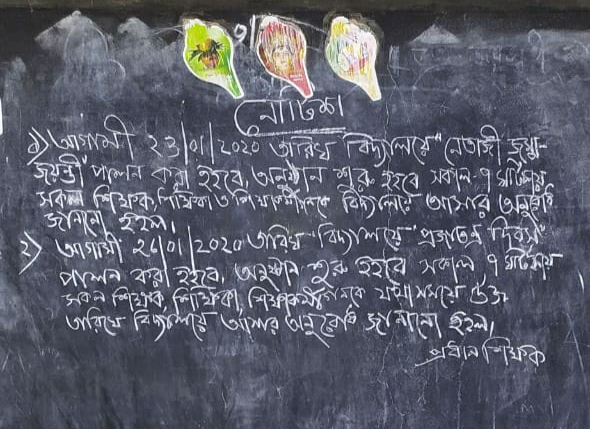 নোটিশ
১) আগামী 23/01/2020 তারিখ বিদ্যালয়ে "নেতাজী জন্ম-
জয়ন্তী" পালন করা হইবে, অনুষ্ঠান শুরু হইবে সকাল ৭ ঘটিকায়
সকল শিক্ষক, শিক্ষিকা ও শিক্ষাকর্মীগনকে বিদ্যালয়ে আসার অনুরোধ
জানানো হইল।
২) আগামী 26/01/2020 তারিখ বিদ্যালয়ে "প্রজাতন্ত্র দিবস"
পালন করা হইবে, অনুষ্ঠান শুরু হইবে সকাল ৭ ঘটিকায়
সকল শিক্ষক, শিক্ষিকা, শিক্ষাকর্মীগনকে যথাসময়ে উক্ত
তারিখে বিদ্যালয়ে আসার অনুরোধ জানানো হইল।
প্রধান শিক্ষক